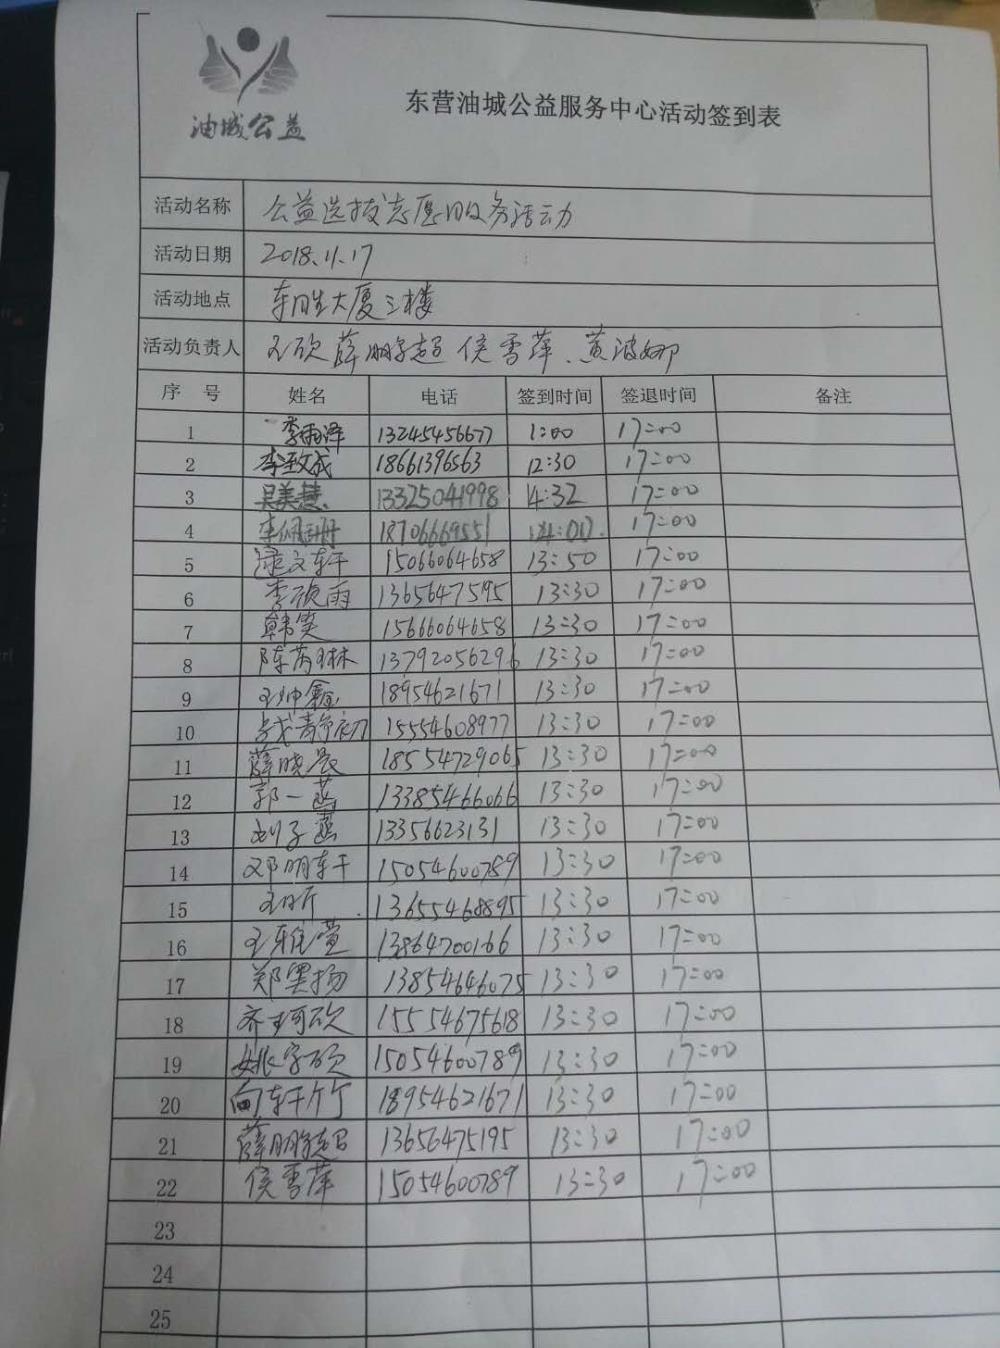 油城公益
东营油城公益服务中心活动签到表
活动名称 公益选拔志愿服务活动
活动日期 2018.11.17
活动地点 东胜大厦三楼
活动负责人 王欣 薛鹏超 侯雪萍、黄波娜
序 号 姓名 电话 签到时间 签退时间 备注
1 李雨泽 13245456677 1:00 17:00
2 李致成 18661396563 12:30 17:00
3 吴美慧 13325041998 4:32 17:00
4 李佩珊 18706669551 14:00 17:00
5 逯文轩 15066064658 13:50 17:00
6 李硕雨 1365647595 13:30 17:00
7 韩笑 15666064658 13:30 17:00
8 陈芮琳 13792056296 13:30 17:00
9 王坤鑫 18954621671 13:30 17:00
10 战静初 15554608977 13:30 17:00
11 薛晓晨 18554729065 13:30 17:00
12 郭一菡 13385466066 13:30 17:00
13 刘子燕 13356623131 13:30 17:00
14 邓明轩 15054600789 13:30 17:00
15 王昕 13655468895 13:30 17:00
16 王雅萱 13864700166 13:30 17:00
17 郑墨扬 13854646075 13:30 17:00
18 齐珂欣 15554675618 13:30 17:00
19 姚字硕 15054600789 13:30 17:00
20 向轩竹 18954621671 13:30 17:00
21 薛鹏超 13656475195 13:30 17:00
22 侯雪萍 15054600789 13:30 17:00
23
24
25